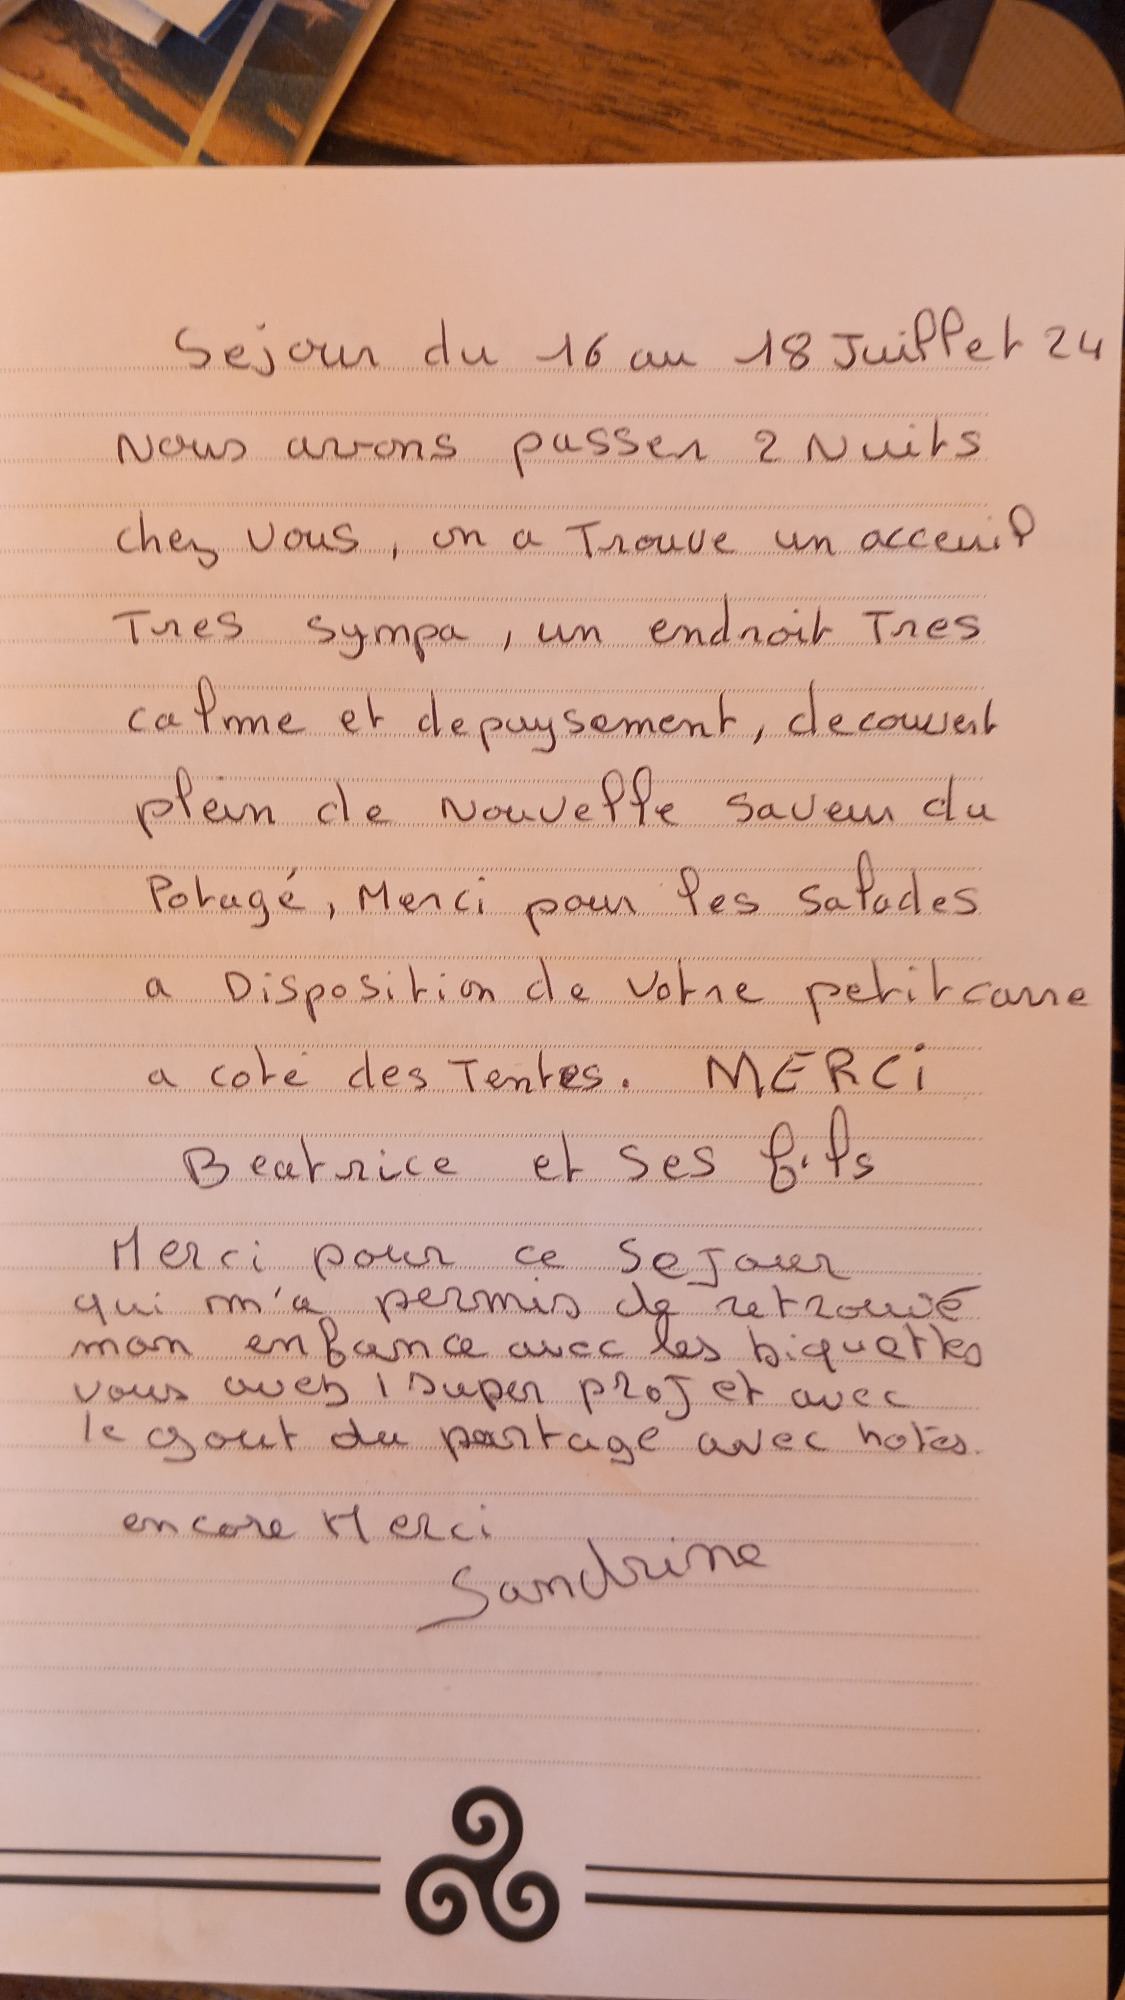 Sejour du 16 au 18 Juillet 24
Nous avons passer 2 Nuits
chez vous, on a Trouve un acceuil
Tres sympa, un endroit Tres
calme et depaysement, decouvert
plein de Nouvelle saveur du
Potagé, Merci pour les salades
a Disposition de votre petit carre
a coté des Tentes. MERCi
Beatrice et ses fils
Merci pour ce sejour
qui m'a permis de retrouvé
mon enfance avec les biquettes
vous avez 1 super projet avec
le gout du partage avec hotes.
encore Merci
Sandrine